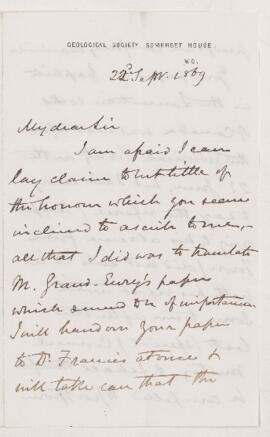 GEOLOGICAL SOCIETY, SOMERSET HOUSE.
W.C.
22d Sepr. 1869
My dear Sir
I am afraid I can
lay claim to but little of
the honour which you seem
inclined to ascribe to me,—
all that I did was to translate
M. Grand-Eury's paper
which seemed to me of importance
I will hand on your paper
to Dr. Francis at once &
will take care that the